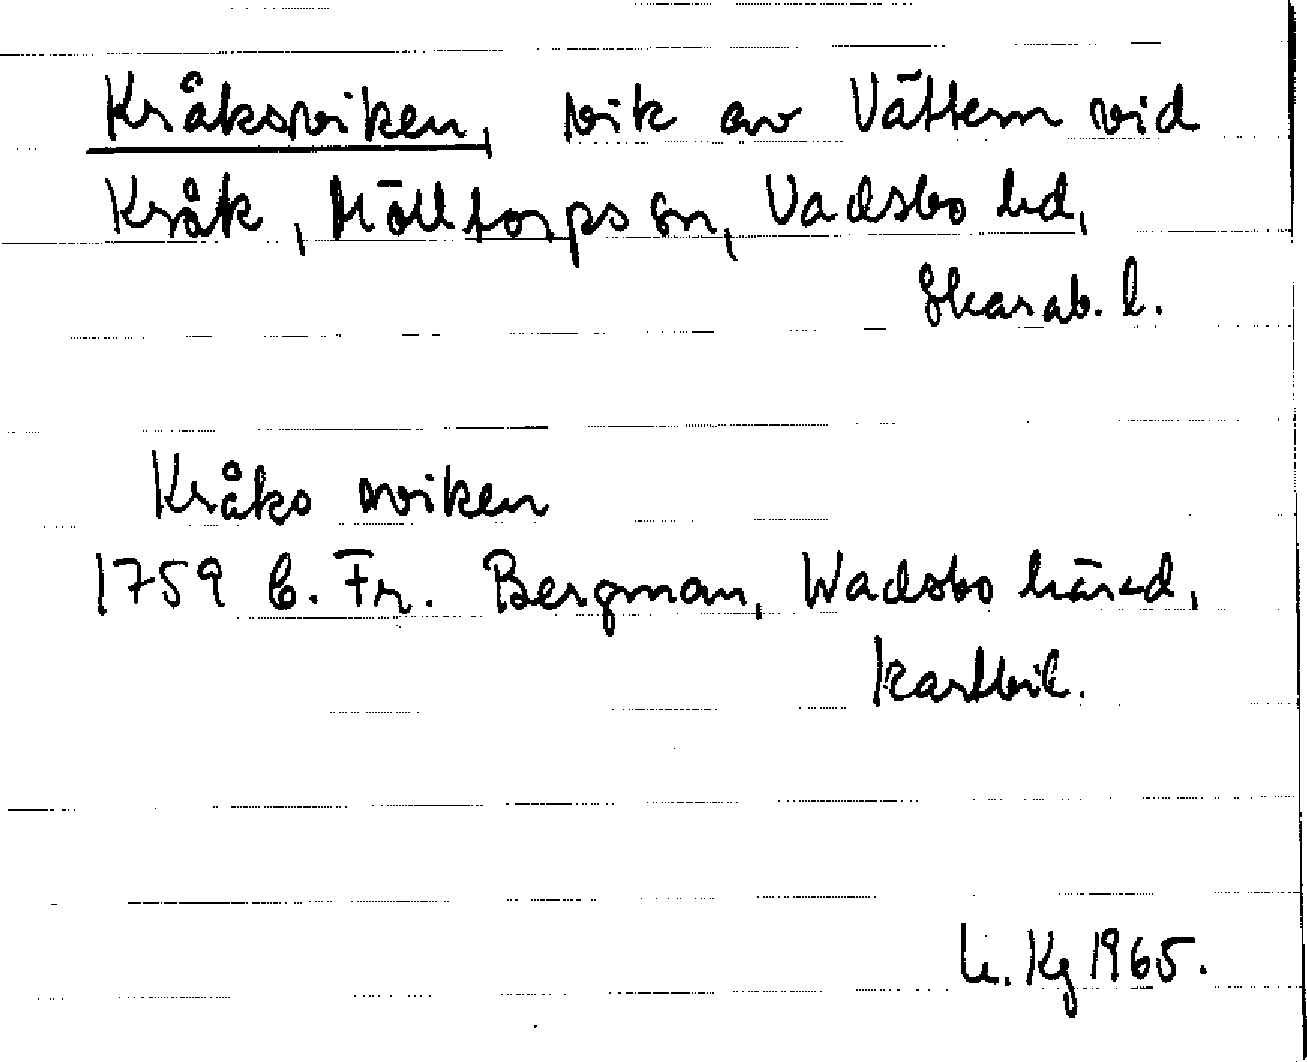 Kråksviken, vik av Vättern vid
Kråk, Mölltorps sn, Vadsbo hd,
Skarab. l.
Kråks viken
1759 C. Fr. Bergman, Wadsbo härad,
kartbil.
Kg 1965.